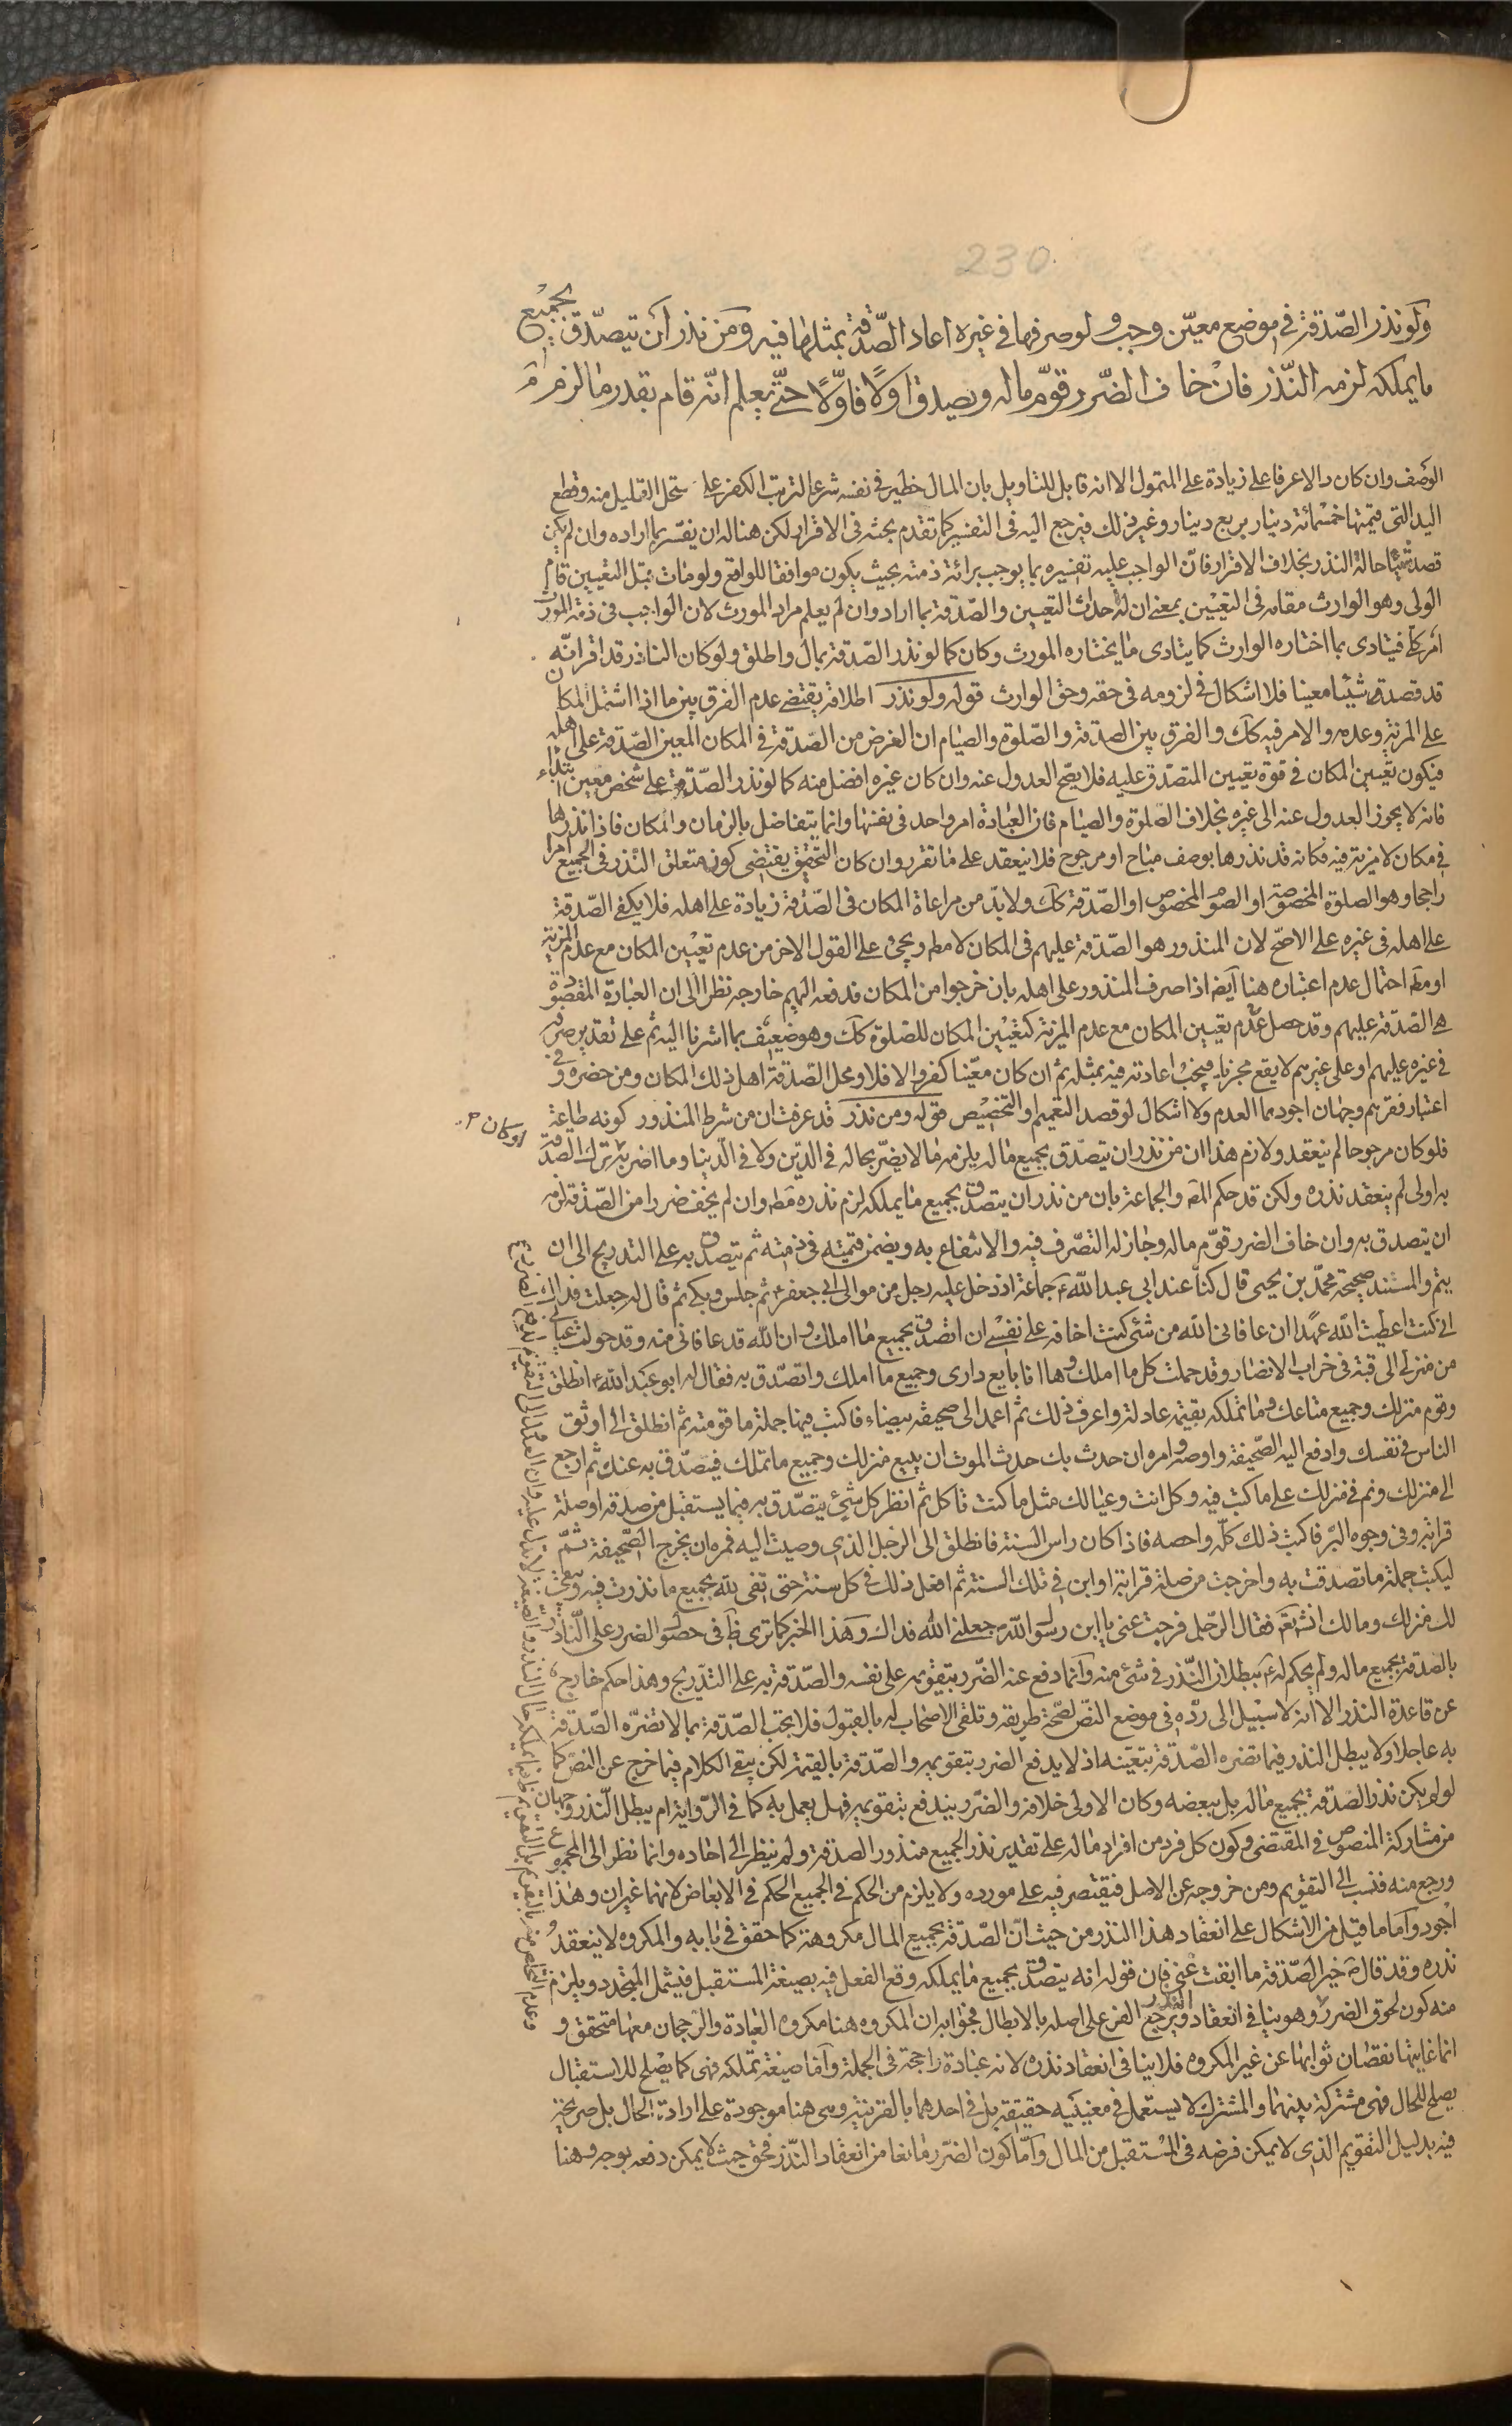 230
ولو نذر الصّدقة في موضع معيّن وجب ولو صرفها في غيره اعاد الصّدقة بمثلها فيه ومن نذر أن يتصدّق بجميع
ما يملكه لزمه النّذر فان خاف الضّرر قوّم ماله ويصدق اولًا فاوّلًا حتّى يعلم انّه قام بقدر ما لزمه
الوصف وان كان دالا عرفا على زيادة على المتمول الا انه قابل للتاويل بان المال خطير في نفسه شرعا لترتب الكفر على مستحل القليل منه وقطع
اليد التى قيمتها خمسمائة دينار بربع دينار وغير ذلك فيرجع اليه فى التفسير كما تقدم بحثه فى الاقرار لكن هنا له ان يفسّر بما اراده وان لم يكن
قصد شيئا حالة النذر بخلاف الاقرار فانّ الواجب عليه تفسيره بما يوجب برائة ذمته بحيث يكون موافقا للواقع ولو مات قبل التعيين قام
الولى وهو الوارث مقامه فى التعيين بمعنى ان له احداث التعيين والصّدقة بما اراد وان لم يعلم مراد المورث لان الواجب فى ذمة المورث
امر كلى فيتادى بما اختاره الوارث كما يتادى ما يختاره المورث وكان كما لو نذر الصّدقة بمال واطلق ولو كان الناذر قد اقر انّه
قد قصد شيئا معينا فلا اشكال فى لزومه فى حقه وحق الوارث قوله ولو نذر اطلاقه يقتضى عدم الفرق بين ما اذا اشتمل المكان
على المزية وعدمه والامر فيه كك والفرق بين الصدقة والصّلوة والصيام ان الغرض من الصّدقة فى المكان المعين الصّدقة على اهله
فيكون تعيين المكان فى قوة تعيين المتصدّق عليه فلا يصّح العدول عنه وان كان غيره افضل منه كما لو نذر الصّدقة على شخص معين ابتداء
فانه لا يجوز العدول عنه الى غيره بخلاف الصّلوة والصيام فان العبادة امر واحد فى نفسها وانما يتفاضل بالزمان والمكان فاذا نذرها
فى مكان لا مزية فيه فكانه قد نذرها بوصف مباح او مرجوح فلا ينعقد على ما تقرر وان كان التحقيق يقتضى كون متعلق النذر فى الجميع امرا
راجحا وهو الصلوة المخصوصة او الصوم المخصوص او الصّدقة كك ولا بدّ من مراعاة المكان فى الصّدقة زيادة على اهله فلا يكفى الصّدقة
على اهله فى غيره على الاصحّ لان المنذور هو الصّدقة عليهم فى المكان لا مطم ويجئ على القول الاخر من عدم تعيين المكان مع عدم المزية
او مطم احتمال عدم اعتباره هنا ايضا اذا صرف المنذور على اهله بان خرجوا من المكان فدفعه اليهم خارجه نظرا الى ان العبادة المقصودة
هى الصّدقة عليهم وقد حصل عدم تعيين المكان مع عدم المزية كتعيين المكان للصّلوة كك وهو ضعيف بما اشرنا اليه ثم على تقدير صرفه
فى غيره عليهم او على غيرهم لا يقع مجزيا فيجب اعادته فيه بمثله ثم ان كان معيّنا كفر والا فلا ومحل الصّدقة اهل ذلك المكان ومن حضره وفى
اعتبار فقرهم وجهان اجودهما العدم ولا اشكال لو قصد التعميم او التخصيص قوله ومن نذر قد عرفت ان من شرط المنذور كونه طاعة
او كان م
فلو كان مرجوحا لم ينعقد ولازم هذا ان من نذر ان يتصدّق بجميع ماله يلزمه ما لا يضرّ بحاله فى الدّين ولا فى الدّنيا وما اضر به ترك الصّدقة
به اولى لم ينعقد نذره ولكن قد حكم المص والجماعة بان من نذر ان يتصدق بجميع ما يملكه لزم نذره مطم وان لم يخف ضررا من الصّدقة لزمه
ان يتصدق به وان خاف الضرر قوّم ماله وجاز له التصّرف فيه والانتفاع به ويضمن قيمته فى ذمته ثم يتصدق به على التدريج الى ان
يتم والمستند صحيحة محمّد بن يحيى قال كنا عند ابى عبد الله ع جماعة اذ دخل عليه رجل من موالى ابى جعفر ع ثم جلس وبكى ثم قال له جعلت فداك
انى كنت اعطيت الله عهدا ان عافانى الله من شئ كنت اخافه على نفسى ان اتصدق بجميع ما املك وان الله قد عافانى منه وقد حولت عيالى
من منزلى الى قبة فى خراب الانصار وقد حملت كل ما املك وها انا بايع دارى وجميع ما املك واتصّدق به فقال له ابو عبد الله ع انطلق
وقوم منزلك وجميع متاعك وما تملكه بقيمة عادلة واعرف ذلك ثم اعمد الى صحيفة بيضاء فاكتب فيها جملة ما قومته ثم انطلق الى اوثق
الناس فى نفسك وادفع اليه الصّحيفة واوصه وامره ان حدث بك حدث الموت ان يبيع منزلك وجميع ما تملك فيتصدّق به عنك ثم ارجع
الى منزلك وقم فى منزلك على ما كنت فيه وكل انت وعيالك مثل ما كنت تاكل ثم انظر كل شئ يتصّدق به فيما يستقبل من صدقة او صلة
قرابة وفى وجوه البّر فاكتب ذلك كلّه واحصه فاذا كان راس السنة فانطلق الى الرجل الذى وصيت اليه فمره ان يخرج الصّحيفة ثمّ
ليكتب جملة ما تصدقت به واخرجت من صلة قرابة او ابن فى تلك السنة ثم افعل ذلك فى كل سنة حتى تفى لله بجميع ما نذرت فيه ويبقى
لك منزلك ومالك انش تعم فقال الرّجل فرجت عنى يا ابن رسول الله جعلنى الله فداك وهذا الخبر كما ترى ظ فى حصول الضرر على النّاذر
بالصدقة بجميع ماله ولم يحكم له ع ببطلان النّذر فى شئ منه وانما دفع عنه الضّرر بتقويمه على نفسه والصّدقة به على التدريج وهذا حكم خارج
عن قاعدة النذر الا انه لا سبيل الى ردّه فى موضع النصّ لصّحة طريقه وتلقى الاصحاب له بالقبول فلا يجب الصّدقة بما لا تضرّه الصّدقة
به عاجلا ولا يبطل النذر فيما تضره الصّدقة بتعيّنه اذ لا يدفع الضرر بتقويمه والصّدقة بالقيمة لكن يبقى الكلام فيما خرج عن النصّ كما
لو لم يكن نذر الصّدقة بجميع ماله بل ببعضه وكان الاولى خلافه والضّرر يندفع بتقويمه فهل يعمل به كما فى الرّواية ام يبطل النّذر وجهان
من مشاركة المنصوص فى المقتضى وكون كل فرد من افراد ماله على تقدير نذر الجميع منذور الصدقة ولم ينظر الى احاده وانما نظر الى المجموع
ورجع منه فنسب الى التقويم ومن خروجه عن الاصل فيقتصر فيه على مورده ولا يلزم من الحكم فى الجميع الحكم فى الابعاض لانهما غيران وهذا
اجود واما ما قيل من الاشكال على انعقاد هذا النذر من حيث انّ الصّدقة بجميع المال مكروهة كما حقق فى بابه والمكروه لا ينعقد
نذره وقد قال ص خير الصّدقة ما ابقت غنى فان قوله انه يتصدق بجميع ما يملكه وقع الفعل فيه بصيغة المستقبل فيشمل المتجدد ويلزم
منه كون لحوق الضرر وهو ينافى انعقاد النذر ويرجع الفرع على اصله بالابطال فجوابه ان المكروه هنا مكروه العبادة والرجحان معها متحقق و
انما غايتها نقصان ثوابها عن غير المكروه فلا ينافى انعقاد نذره لانه عبادة راجحة فى الجملة واما صيغة تملكه فهى كما يصلح للاستقبال
يصلح للحال فهى مشتركة بينهما والمشترك لا يستعمل فى معنييه حقيقة بل فى احدهما بالقرينة وهى هنا موجودة على ارادة الحال بل صريحة
فيه بدليل التقويم الذى لا يمكن فرضه فى المستقبل من المال وامّا كون الضّرر مانعا من انعقاد النّذر فحق حيث لا يمكن دفعه بوجه وهنا